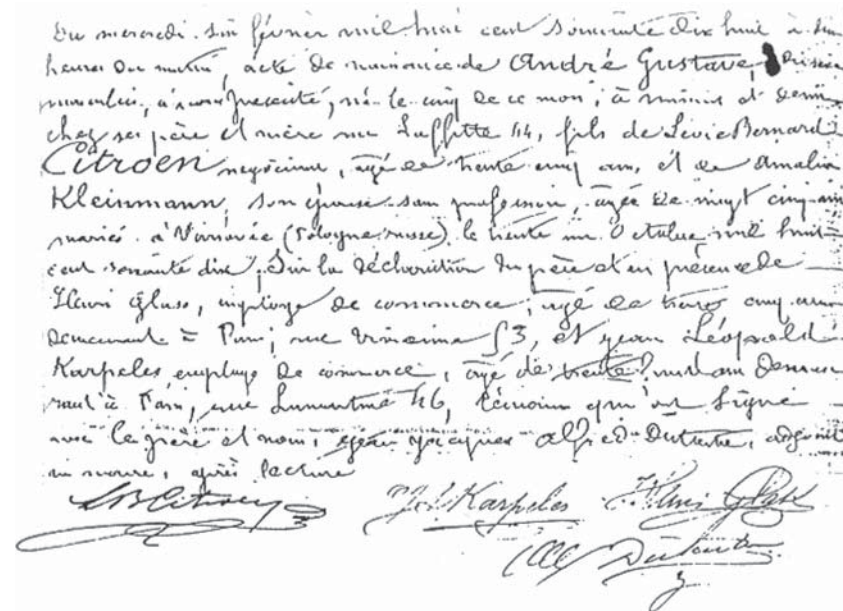 Du mercredi six février mil huit cent soixante dix huit à dix
heures du matin, acte de naissance de André Gustave, du sexe
masculin, à nous présenté, né le cinq de ce mois, à minuit et demi
chez ses père et mère rue Laffitte 44, fils de Levie Bernard
Citroen négociant, âgé de trente cinq ans, et de Amalia
Kleinmann, son épouse sans profession, âgée de vingt cinq ans
mariés à Varsovie (Pologne russe) le trente un Octobre mil huit
cent soixante dix, Sur la déclaration du père et en présence de
Henri Glass, employé de commerce, âgé de trente cinq ans
demeurant à Paris, rue 53, et Jean Léopold
Karpeles, employé de commerce, âgé de trente ans demeu
rant à Paris, rue Lamartine 46, témoins qui ont signé
avec le père et nous, Jean Jacques Alfred Dutartre, adjoint
au maire, après lecture
LB Citroen J. L. Karpeles Henri Glass